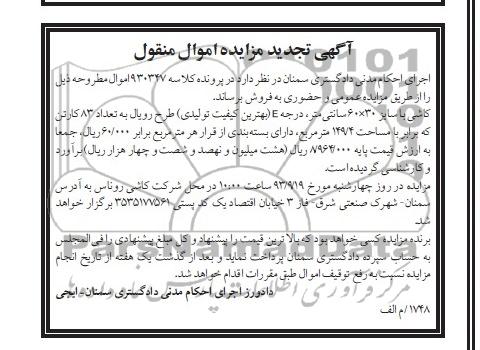 آگهی تجدید مزایده اموال منقول
اجرای احکام مدنی دادگستری سمنان در نظر دارد در پرونده کلاسه ۹۳۰۳۴۷ اموال مطروحه ذیل
را از طریق مزایده عمومی و حضوری به فروش برساند.
کاشی با سایز ۳۰×۶۰ سانتی متر، درجه E (بهترین کیفیت تولیدی) طرح رویال به تعداد ۸۳ کارتن
که برابر با مساحت ۱۴۹/۴ مترمربع، دارای بسته‌بندی از قرار هر مترمربع برابر ۶۰/۰۰۰ ریال، جمعا
به ارزش قیمت پایه ۸۹۶۴۰۰۰ ریال (هشت میلیون و نهصد و شصت و چهار هزار ریال) برآورد
و کارشناسی گردیده است.
مزایده در روز چهارشنبه مورخ ۹۳/۹/۱۹ ساعت ۱۰:۰۰ در محل شرکت کاشی روناس به آدرس
سمنان- شهرک صنعتی شرق- فاز ۳ خیابان اقتصاد یک کد پستی ۳۵۳۵۱۷۷۵۶۱ برگزار خواهد
شد.
برنده مزایده کسی خواهد بود که بالاترین قیمت را پیشنهاد و کل مبلغ پیشنهادی را فی‌المجلس
به حساب سپرده دادگستری سمنان پرداخت نماید و بعد از گذشت یک هفته از تاریخ انجام
مزایده نسبت به رفع توقیف اموال طبق مقررات اقدام خواهد شد.
دادورز اجرای احکام مدنی دادگستری سمنان- ایچی
۱۷۴۸/م الف